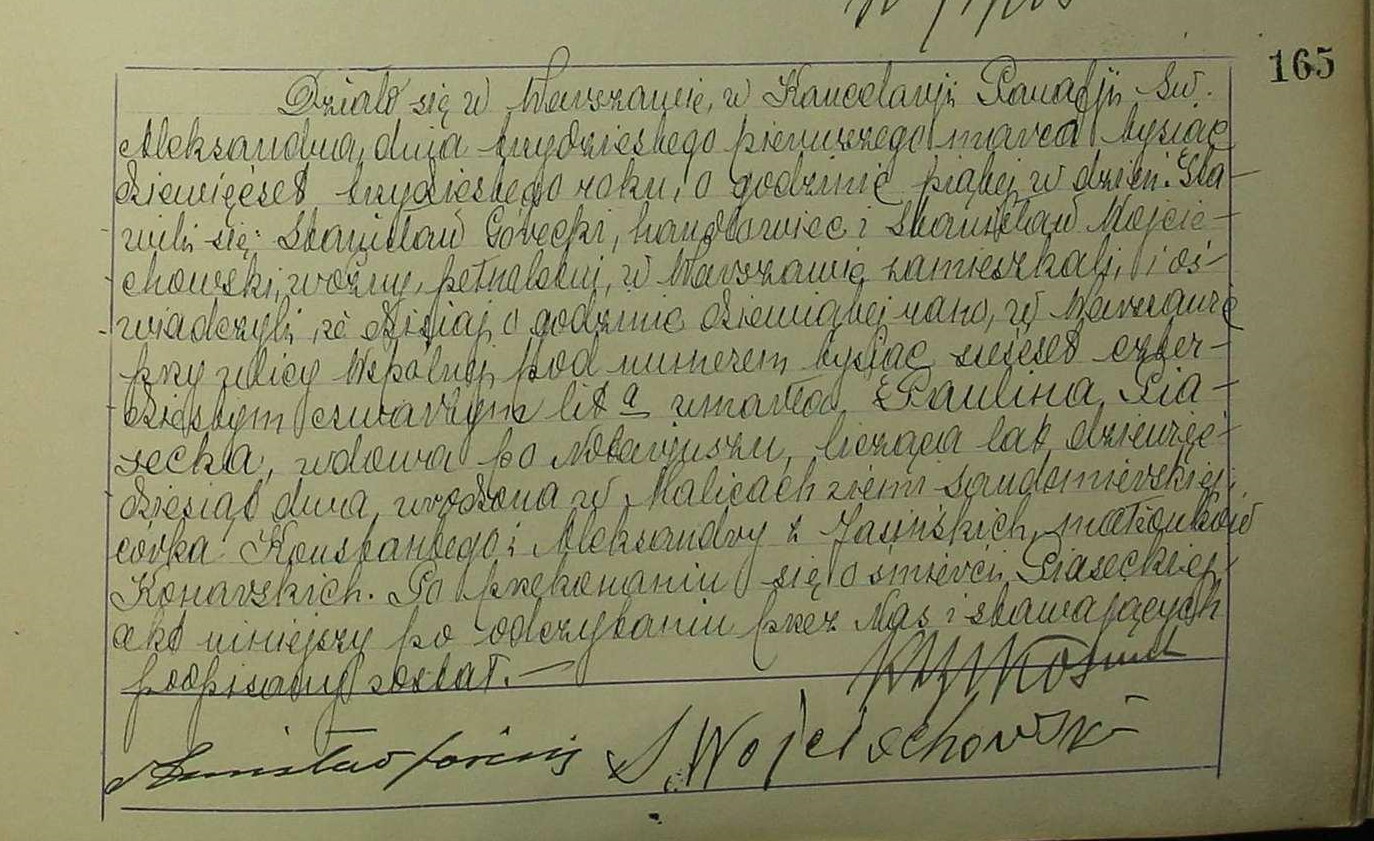 165
Działo się w Warszawie, w Kancelarji Parafji Św.
Aleksandra, dnia trzydziestego pierwszego marca tysiąc
dziewięćset trzydziestego roku, o godzinie piątej w dzień. Sta-
wili się: Stanisław Górecki, handlowiec i Stanisław Wojcie-
chowski, woźny, pełnoletni, w Warszawie zamieszkali, i oś-
wiadczyli, że dzisiaj o godzinie dziewiątej rano, w Warszawie
przy ulicy Wspólnej pod numerem tysiąc sześćset czter-
dziestym czwartym lit a umarła Paulina Pia-
secka, wdowa po Notarjuszu, licząca lat dziewięć-
dziesiąt dwa, urodzona w Malicach ziemi sandomierskiej,
córka Konstantego i Aleksandry z Jasińskich, małżonków
Konarskich. Po przekonaniu się o śmierci Piaseckiej
akt niniejszy po odczytaniu przez Nas i stawających
podpisany został. —
Stanisław S. Wojciechowski